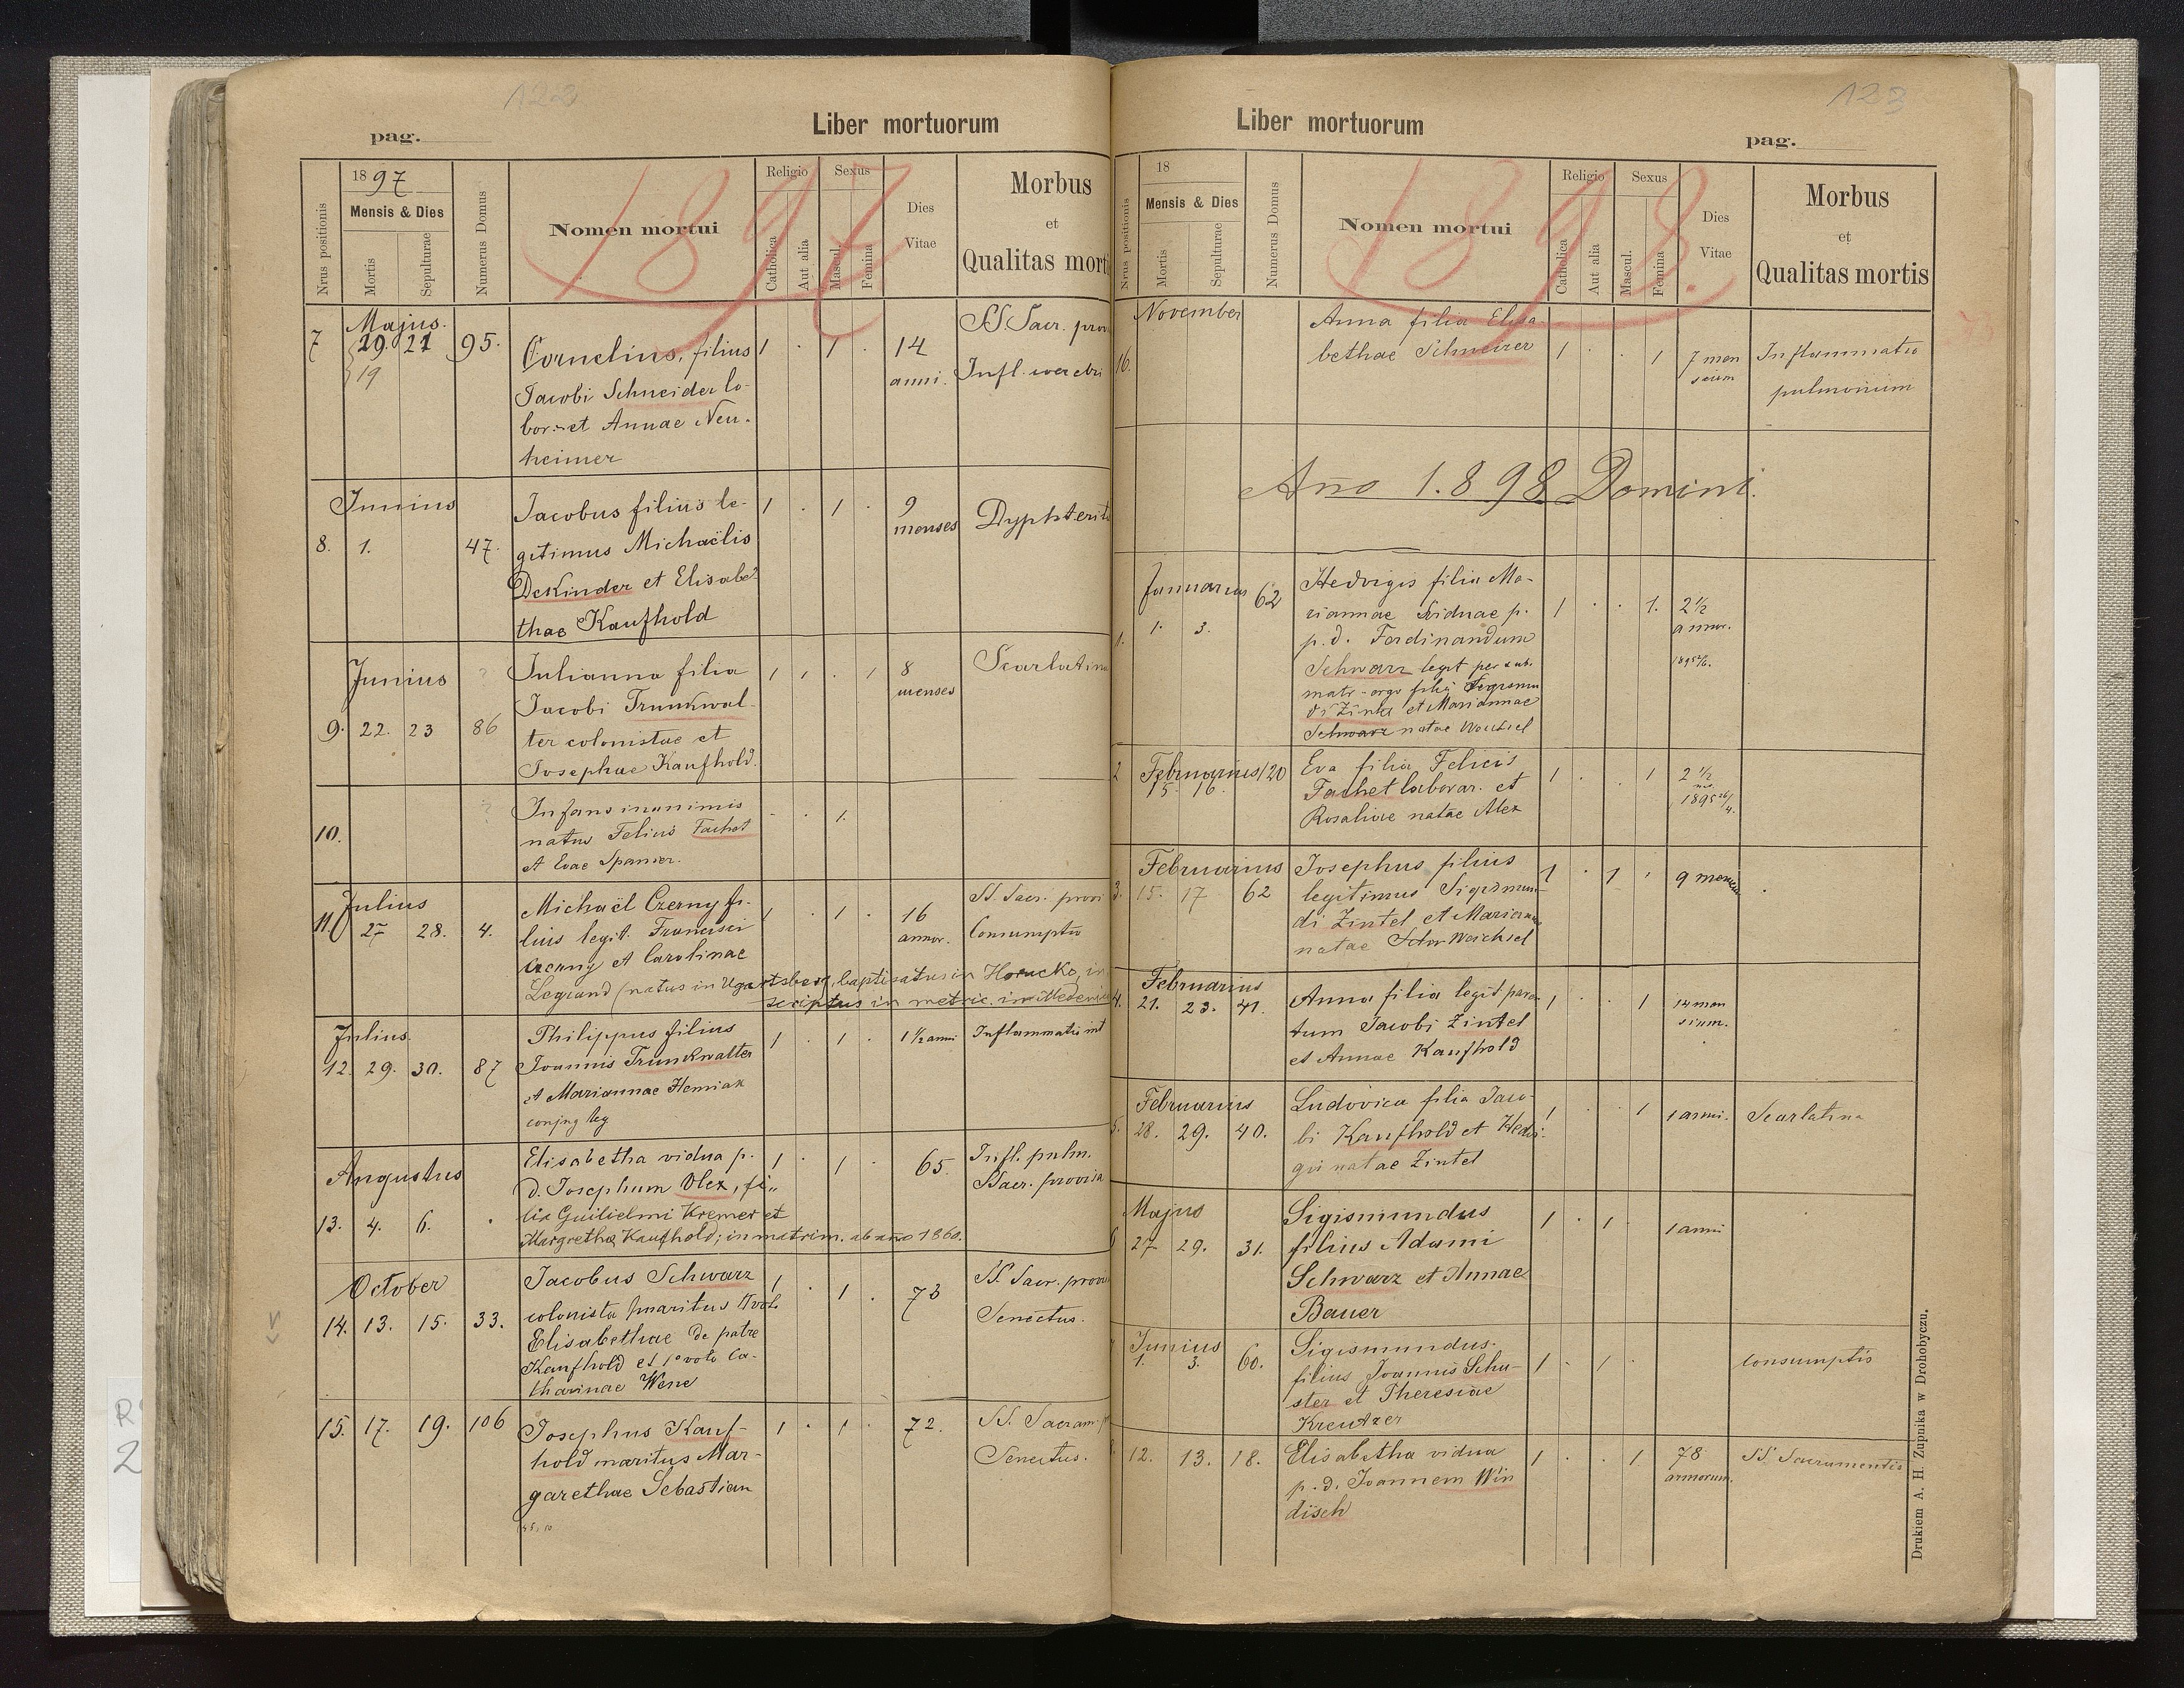 122
pag.
Liber mortuorum
1897
1897
Nrus positionis
Mensis & Dies
Mortis
Sepulturae
Numerus Domus
Nomen mortui
Religio
Catholica
Aut alia
Sexus
Mascul.
Femina
Dies
Vitae
Morbus
et
Qualitas mortis
Majus.
7 29. 21 95.
19
Cornelius, filius
Jacobi Schneider la-
bor. et Annae Neu-
heimer
1 . 1 . 14
anni.
SS Sacr. prov
Infl. cerebri
Junius
8. 1. 47.
Jacobus filius le-
gitimus Michaëlis
DeKinder et Elisabe-
thae Kaufhold
1 . 1 . 9
menses
Dyphterit
Junius
9. 22. 23 86
Julianna filia
Jacobi Trunkwal-
ter colonistae et
Josephae Kaufhold.
1 1 . 1 8
menses
Scarlatina
10.
Infans inanimis
natus Felicis Tachet
et Evae Spanier.
. 1.
Julius
11. 27 28. 4.
Michaël Czerny fi-
lius legit. Francisci
Czerny et Carolinae
Legrand (natus in Ugartsberg, baptisatus in Horucko, in
scriptus in metric. in Medenice
1 . 1 . 16
annor.
SS. Sacr. provi
Consumptio
Julius.
12. 29. 30. 87
Philippus filius
Joannis Trunkwalter
et Mariannae Hemiak
conjug leg
1 . 1 . 1 1/2 anni
Inflammatio int
Augustus
13. 4. 6. .
Elisabetha vidua p.
d. Josephum Olex, fi-
lia Guilielmi Kremer et
Margretha Kaufhold; in matrim. ab año 1860.
1 . 1 . 65.
Infl. pulm.
Sacr. provisa
October
14. 13. 15. 33.
Jacobus Schwarz
colonista maritus II vot.
Elisabethae de patre
Kaufhold et 1º voto Ca-
tharinae Wene
1 . 1 . 73
SS. Sacr. provis
Senectus.
15. 17. 19. 106
Josephus Kauf-
hold maritus Mar-
garethae Sebastian
1 . 1 . 72.
SS. Sacram. p
Senectus.
123
Liber mortuorum
pag.
18
1898.
Nrus positionis
Mensis & Dies
Mortis
Sepulturae
Numerus Domus
Nomen mortui
Religio
Catholica
Aut alia
Sexus
Mascul.
Femina
Dies
Vitae
Morbus
et
Qualitas mortis
November
16.
Anna filia Elisa-
bethae Schneirer
1 . . 1 7 men
sium
Inflammatio
pulmonum
Año 1.898 Domini.
Januarius 62
1. 1. 3.
Hedvigis filia Ma-
riannae viduae p.
p.d. Ferdinandum
Schwarz legit per sub.
matr. ergo filia Segismun
di Zintel et Mariannae
Schwarz natae Weichsel
1 . . 1. 2 1/2
annor.
Februarius 120
2 15. 16.
Eva filia Felicis
Tachet laborar. et
Rosaliae natae Alex
1 . 1 2 1/2
1895 26/4.
Februarius
3. 15. 17 62
Josephus filius
legitimus Sigismun-
di Zintel et Mariannae
natae Weichsel
1 . 1 . 9 menses
Februarius
4. 21. 23. 41.
Anna filia legit paren
tum Jacobi Zintel
et Annae Kaufhold
1 . . 1 14 men
sium.
Februarius
5. 28. 29. 40.
Ludovica filia Jaco-
bi Kaufhold et Hedvi-
gis natae Zintel
1 . . 1 1 anni.
Scarlatina
Majus
6 27 29. 31.
Sigismundus
filius Adami
Schwarz et Annae
Bauer
1 . 1 1 anni
Junius
7 1. 3. 60.
Sigismundus.
filius Joannis Schu-
ster et Theresiae
Kreutzer
1 . 1 .
Consumptis
8. 12. 13. 18.
Elisabetha vidua
p.d. Joannem Win
disch
1 . . 1 78
annorum.
SS Sacramentis
Drukiem A. H. Żupnika w Drohobyczu.